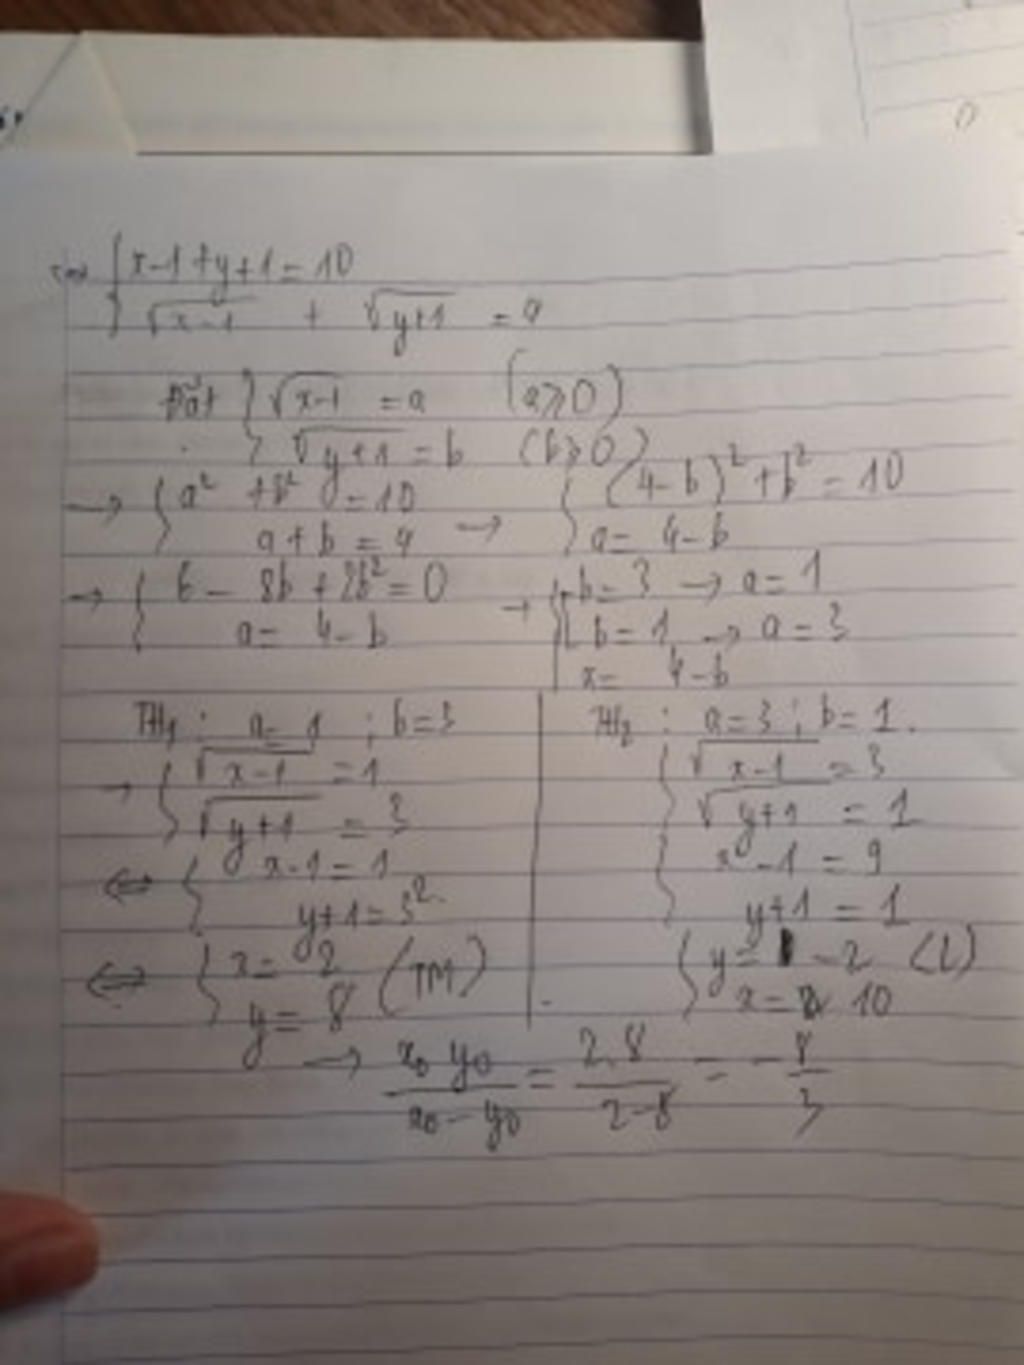 { x-1+y+1=10
√(x-1) + √(y+1) = 4
Đặt { √(x-1) = a (a≥0)
√(y+1) = b (b≥0)
→ { a² + b² = 10
a+b = 4
→ { (4-b)² + b² = 10
a = 4-b
→ { 6 - 8b + 2b² = 0
a = 4-b
→ { [ b=3 → a=1
b=1 → a=3
x= 4-b
TH₁ : a=1 ; b=3
→ { √(x-1) = 1
√(y+1) = 3
⇔ { x-1=1
y+1=3²
⇔ { x= 2 (TM)
y= 8
TH₂ : a=3 ; b=1.
{ √(x-1) = 3
√(y+1) = 1
{ x-1 = 9
y+1 = 1
{ y= -2 (L)
x= 10
→ x₀ y₀ / x₀ - y₀ = 2.8 / 2-8 = - 8/3